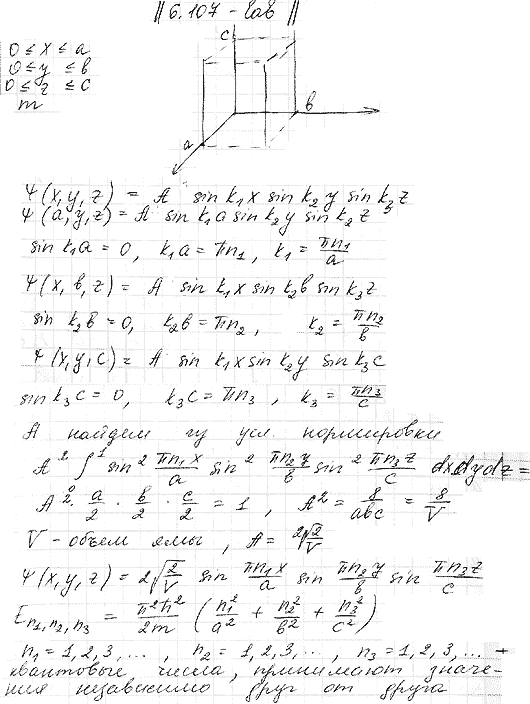 || 6.107 - lab ||
0 ≤ x ≤ a
0 ≤ y ≤ в
0 ≤ z ≤ c
m
c
в
a
Ψ(x,y,z) = A sin k₁x sin k₂y sin k₃z
Ψ(a,y,z) = A sin k₁a sin k₂y sin k₂z
sin k₁a = 0, k₁a = πn₁, k₁ = πn₁/a
Ψ(x, в, z) = A sin k₁x sin k₂в sin k₃z
sin k₂в = 0, k₂в = πn₂, k₂ = πn₂/в
Ψ(x,y,c) = A sin k₁x sin k₂y sin k₃c
sin k₃c = 0, k₃c = πn₃, k₃ = πn₃/c
A найдем из усл. нормировки
A² ∫ sin² πn₁x/a sin² πn₂y/в sin² πn₃z/c dxdydz =
A² · a/2 · в/2 · c/2 = 1, A² = 8/aвc = 8/V
V - объем ямы, A = 2√2/V
Ψ(x,y,z) = 2√2/V sin πn₁x/a sin πn₂y/в sin πn₃z/c
En₁,n₂,n₃ = π²ħ²/2m (n₁²/a² + n₂²/в² + n₃²/c²)
n₁ = 1,2,3,..., n₂ = 1,2,3,..., n₃ = 1,2,3,... -
квантовые числа, принимают значе-
ния независимо друг от друга